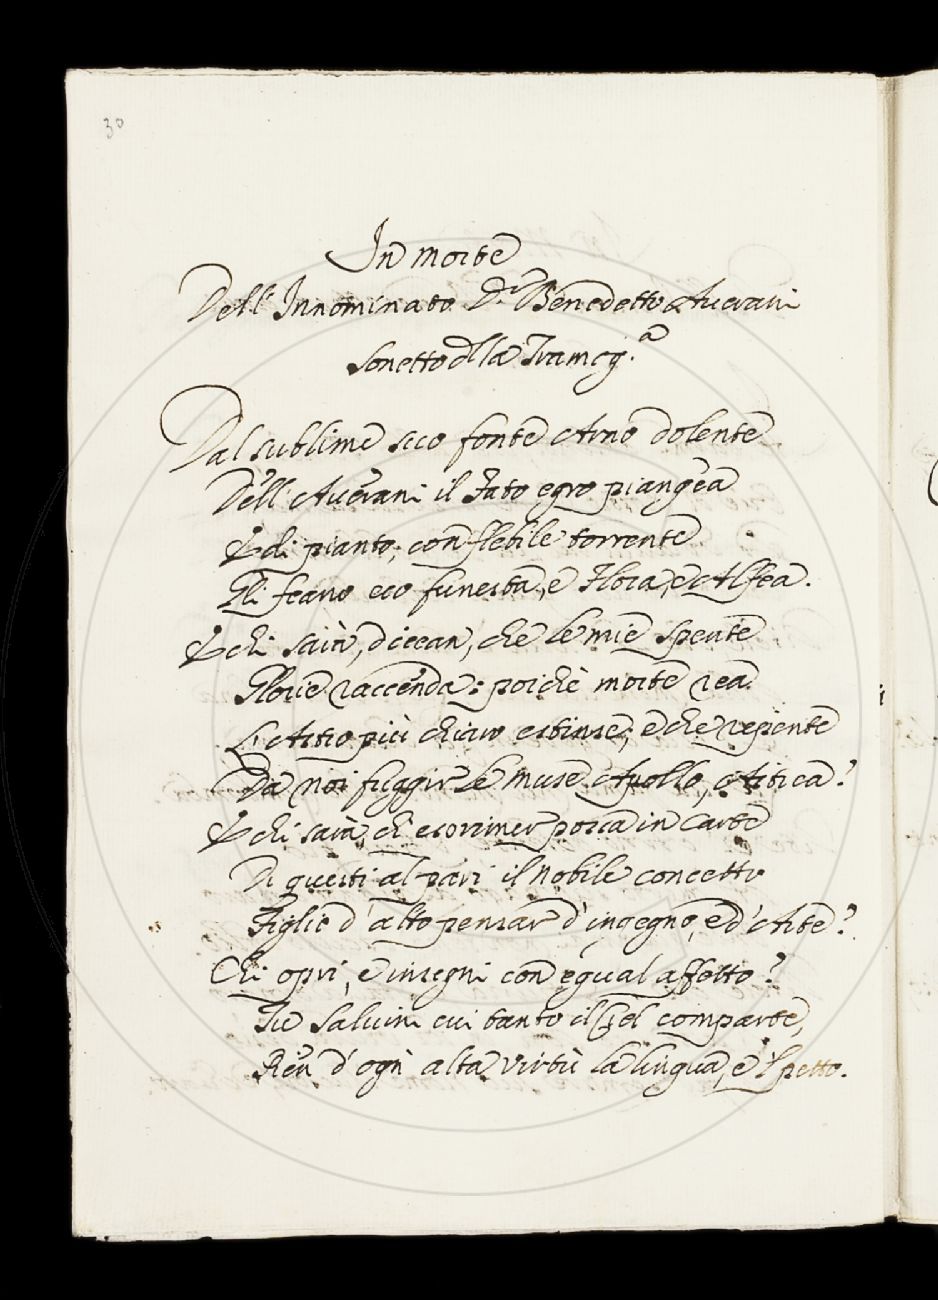 30
In morte
Dell' Innominato D.r Benedetto Averani
Sonetto d'la Tramcg.a
Dal sublime suo fonte Arno dolente
Dell' Averani il Fato egro piangea
E di pianto, con flebile torrente
Gli feano eco funesta, e Flora, e Alfea.
E chi sarà, dicean, che le mie spente
Glorie raccenda: poichè morte rea
L'Astro più chiaro estinse, e che repente
Da noi fuggir le muse Apollo, Astrea?
E chi sarà, ch' esprimer possa in Carte
Di questi al pari il nobile concetto
Figlio d' alto pensar d' ingegno, e d' Arte?
Chi opri, e insegni con egual affetto?
Tu Salvini cui tanto il Ciel comparte,
Rien d' ogn' alta virtù la lingua, e 'l petto.